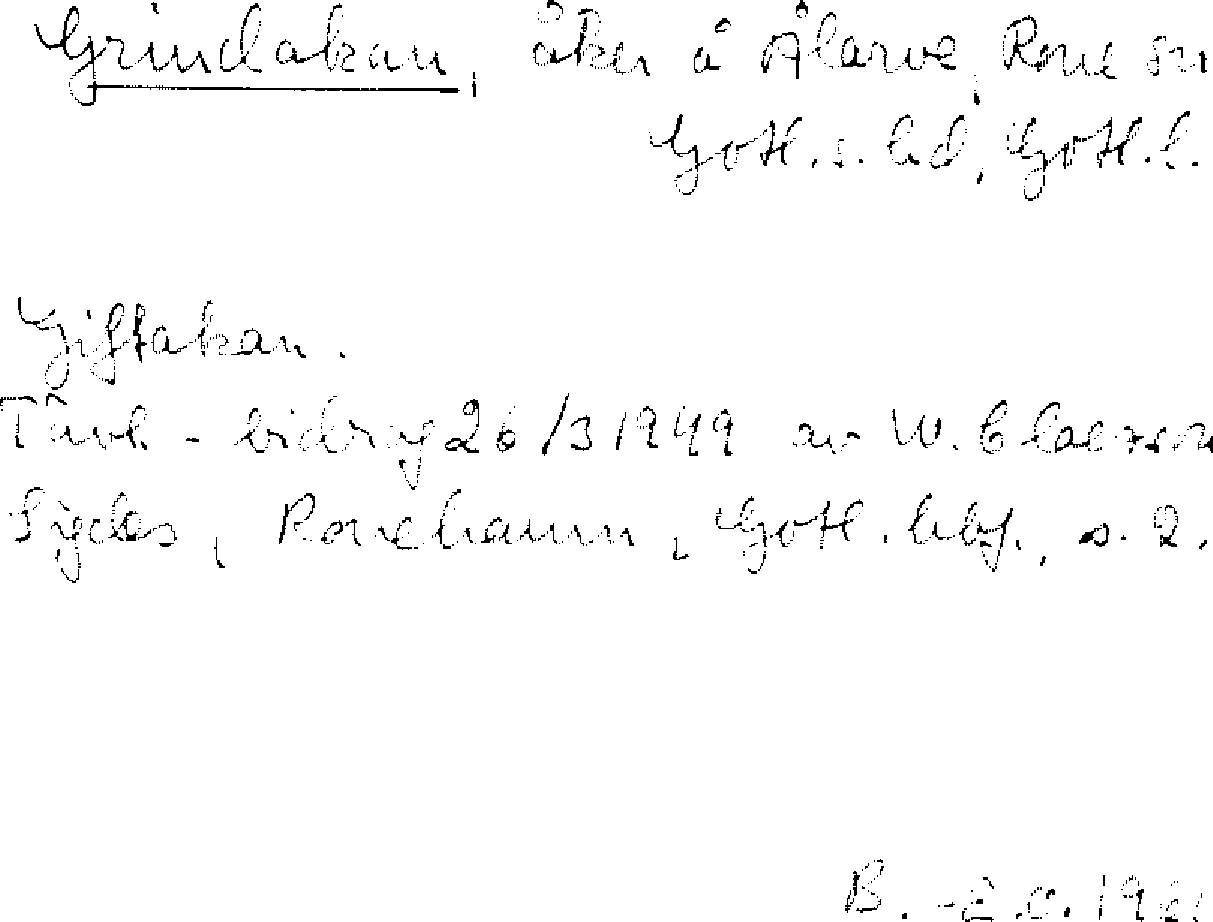 Grindakan, åker å Ålarve, Rone sn
Gotl. s. hd, Gotl. l.
Giftakan.
Tävl. - bidrag 26/3 1949 av W. Claesson
Sigdes, Ronehamn, Gotl. hbf., s. 2.
B.